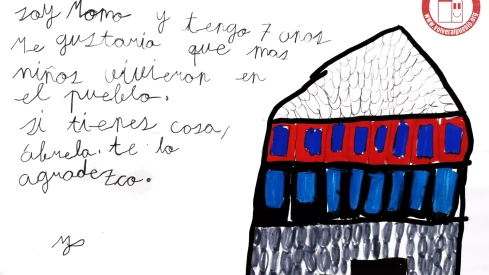 soy Momo y tengo 7 años
Me gustaria que mas
niños vivieran en
el pueblo.
si tienes cosa,
abrela. te lo
agradezco.
www.volveralpueblo.org